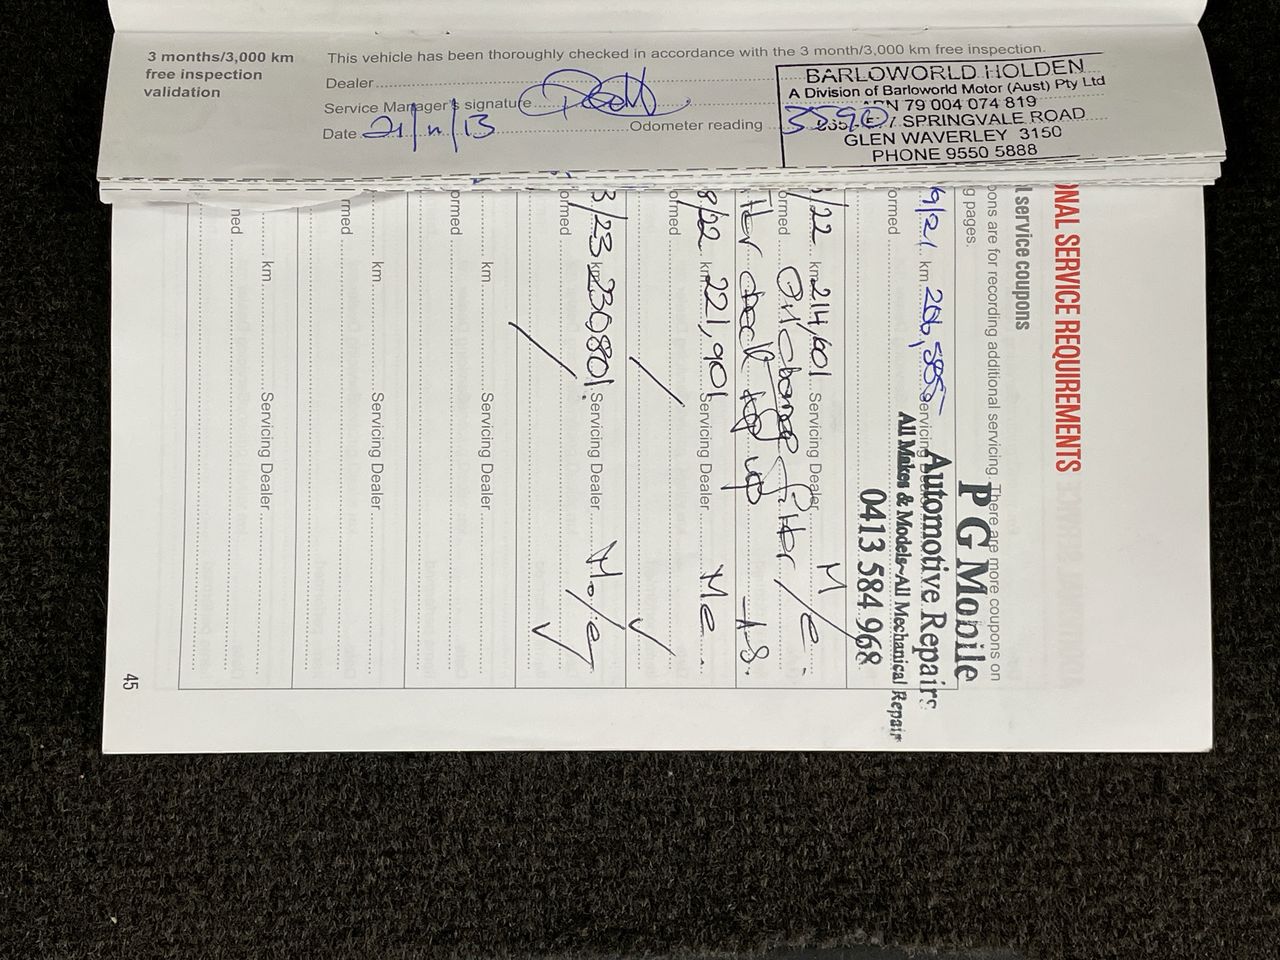 3 months/3,000 km
free inspection
validation
This vehicle has been thoroughly checked in accordance with the 3 month/3,000 km free inspection.
Dealer
Service Manager's signature
Date 21/11/13
Odometer reading 3590
BARLOWORLD HOLDEN
A Division of Barloworld Motor (Aust) Pty Ltd
79 004 074 819
SPRINGVALE ROAD
GLEN WAVERLEY 3150
PHONE 9550 5888
NAL SERVICE REQUIREMENTS
service coupons
pons are for recording additional servicing. There are more coupons on
g pages.
P G Mobile
Automotive Repairs
All Makes & Models~All Mechanical Repair
0413 584 968
9/21 km 206,585 Servicing
ormed
/22 km 214,601 Servicing Dealer M/e.
ormed Oil change filter
check top up
8/22 km 221,901 Servicing Dealer Me.
ormed
3/23 km 230801. Servicing Dealer
ormed
km Servicing Dealer
ormed
km Servicing Dealer
rmed
km Servicing Dealer
ned
45